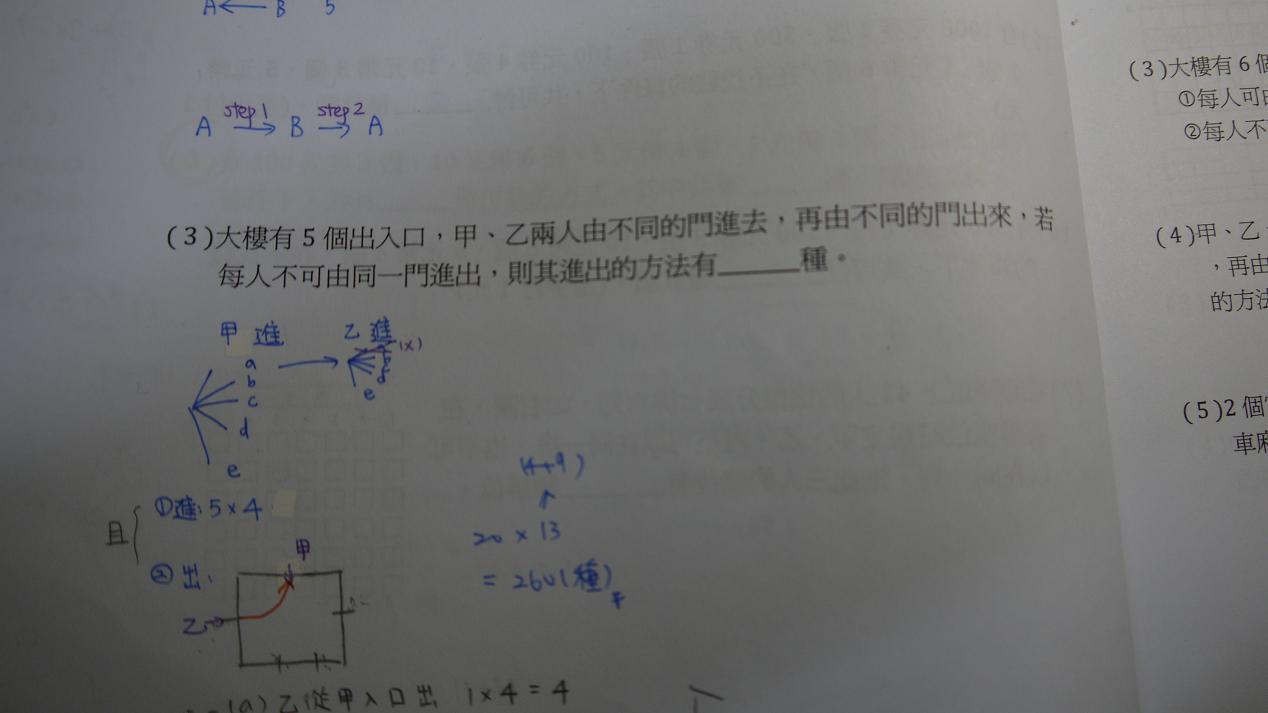 A ← B 5
step1 step2
A → B → A
(3)大樓有 5 個出入口，甲、乙兩人由不同的門進去，再由不同的門出來，若
每人不可由同一門進出，則其進出的方法有______種。
甲進 乙進
a → (x)
b
c
d
e
e
①進: 5×4
且
②出:
甲
乙→
(4+9)
↑
20 × 13
= 260(種)
(a) 乙從甲入口出 1×4=4
(3)大樓有 6 個
①每人可
②每人不
(4)甲、乙、
，再由
的方法
(5)2 個
車麻